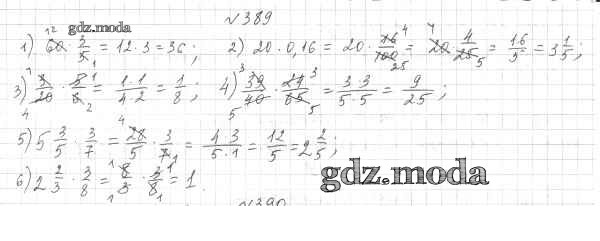 №389
gdz.moda
1) 60 · 3/5 = 12 · 3 = 36 ; 2) 20 · 0,16 = 20 · 16/100 = 20 · 4/25 = 16/5 = 3 1/5 ;
3) 5/20 · 5/8 = 1·1/4·2 = 1/8 ; 4) 39/40 · 24/65 = 3·3/5·5 = 9/25 ;
5) 5 3/5 · 3/7 = 28/5 · 3/7 = 4·3/5·1 = 12/5 = 2 2/5 ;
6) 2 2/3 · 3/8 = 8/3 · 3/8 = 1 .
gdz.moda
№390